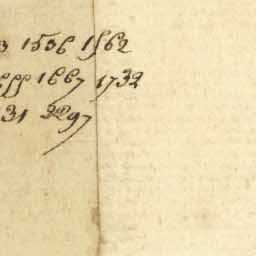 3 1536 1562
1667 1732
31 2297